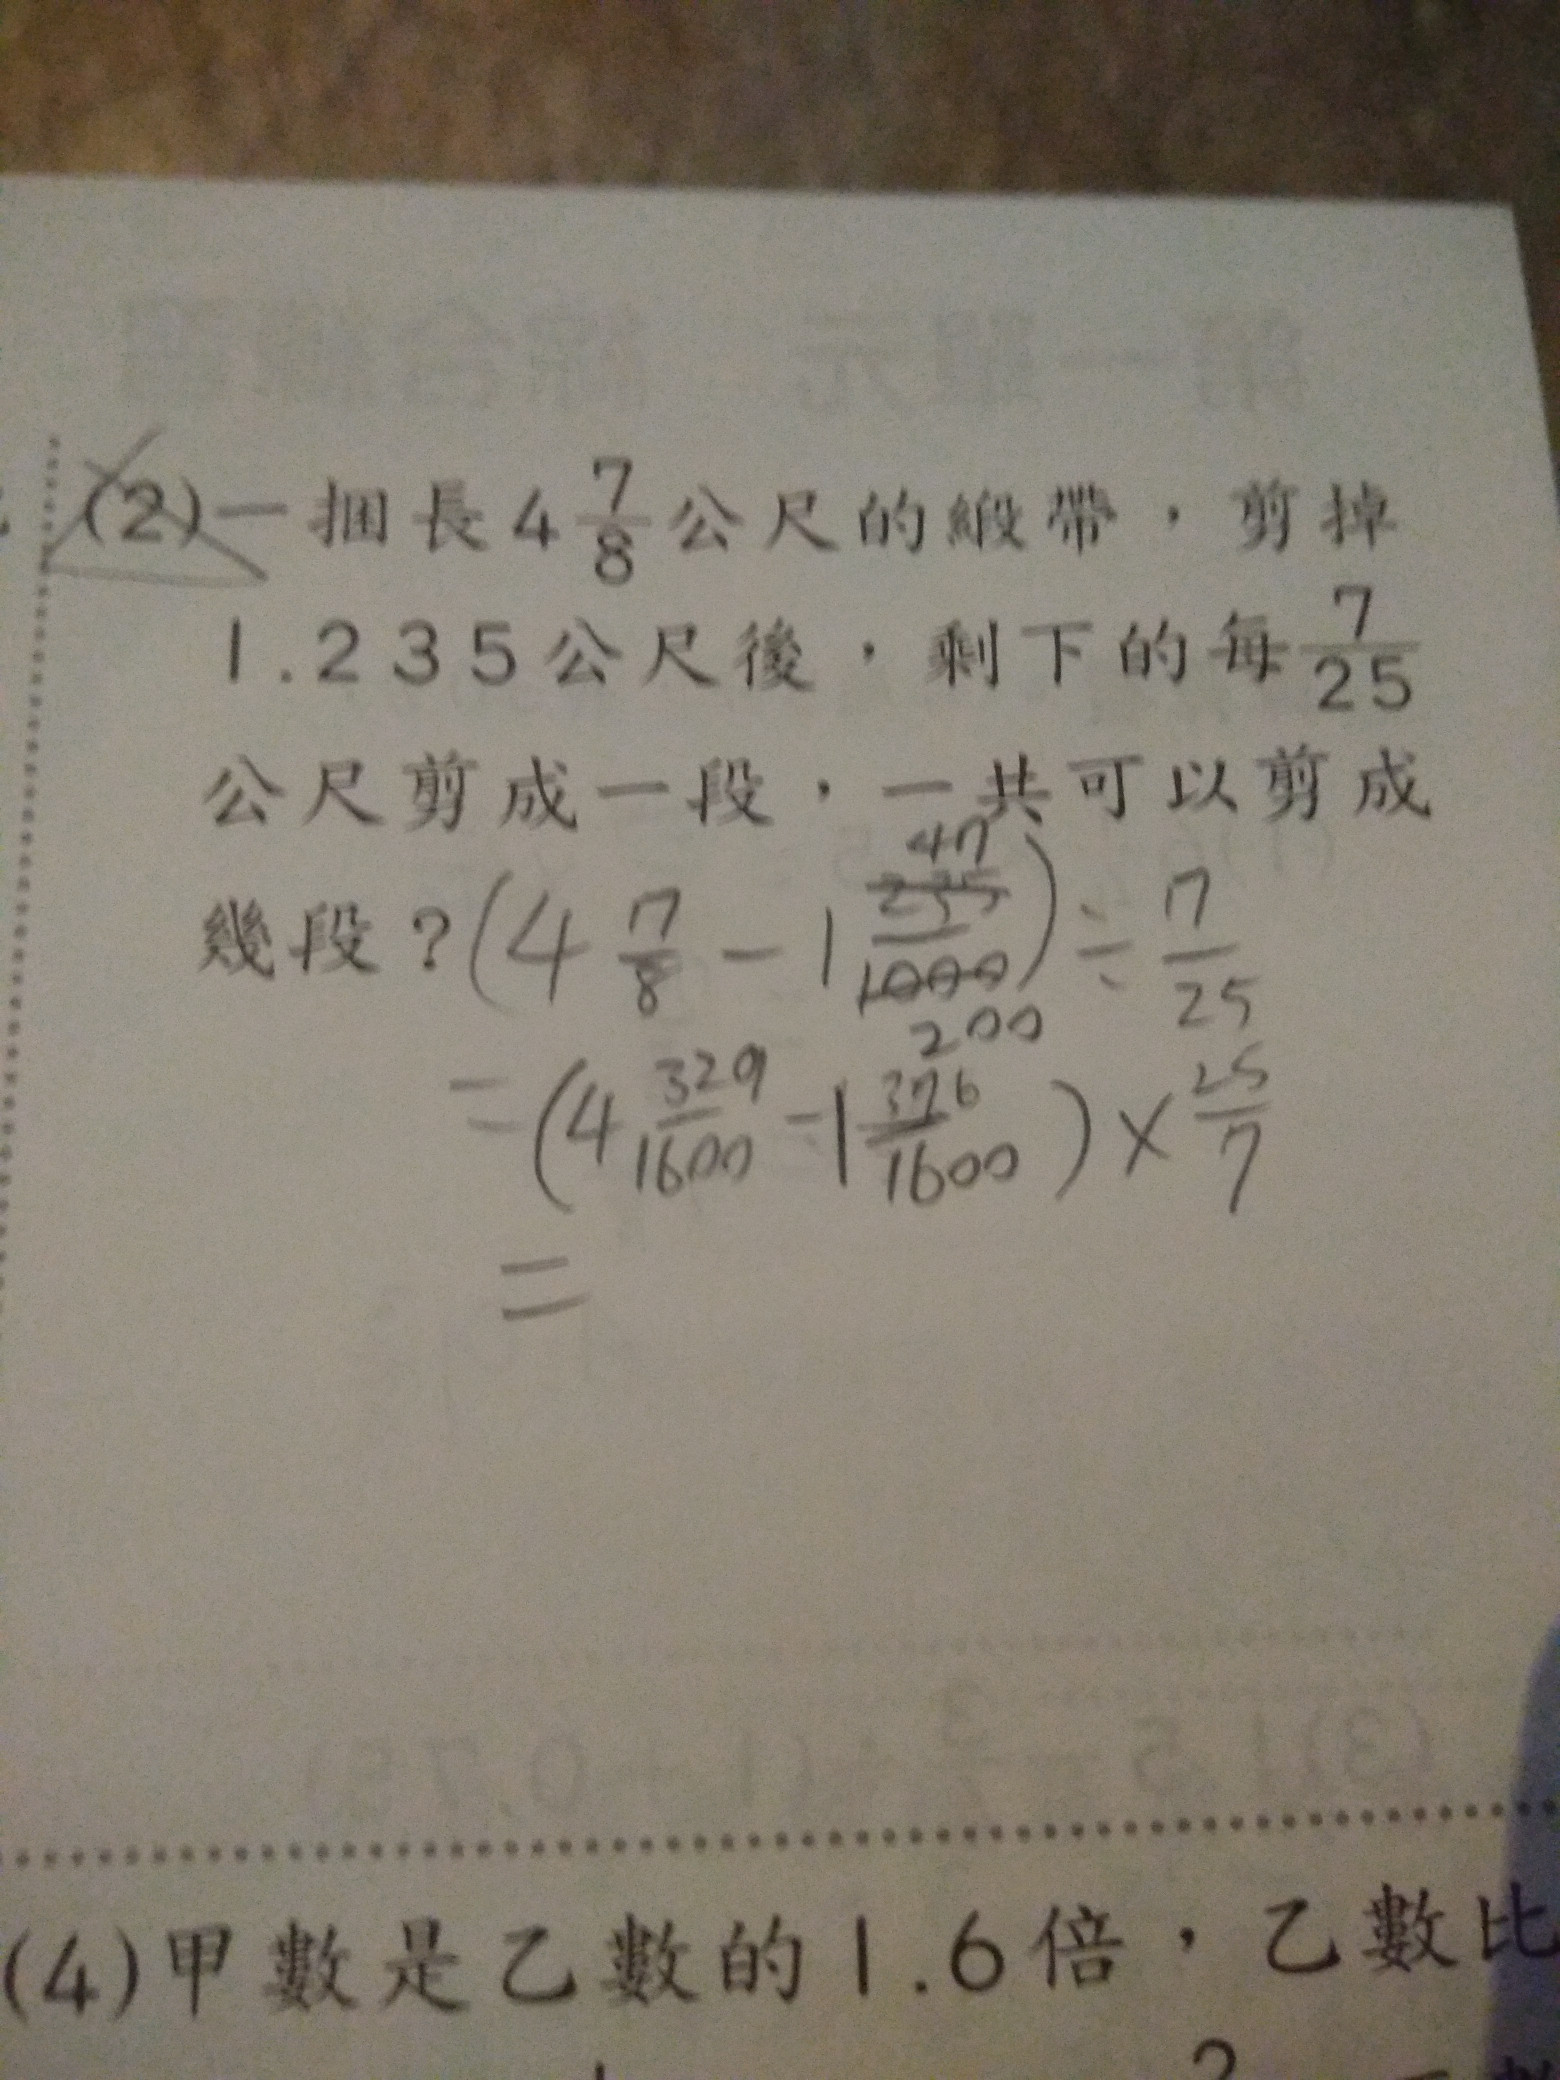 (2)一捆長4 7/8公尺的緞帶，剪掉
1.235公尺後，剩下的每 7/25
公尺剪成一段，一共可以剪成
幾段？(4 7/8 - 1 235/1000 47/200) ÷ 7/25
= (4 329/1600 - 1 376/1600) × 25/7
=
(4)甲數是乙數的1.6倍，乙數比